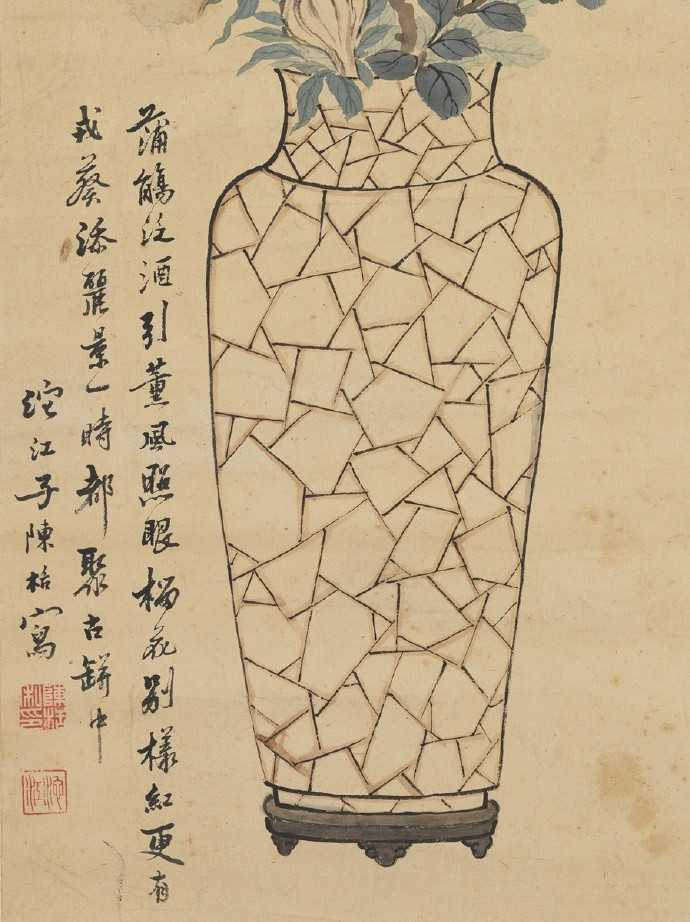 蒲觴泛酒引薰風照眼榴花別樣紅更有
戎葵添麗景一時都聚古缾中
沱江子陳栝寫
沱江